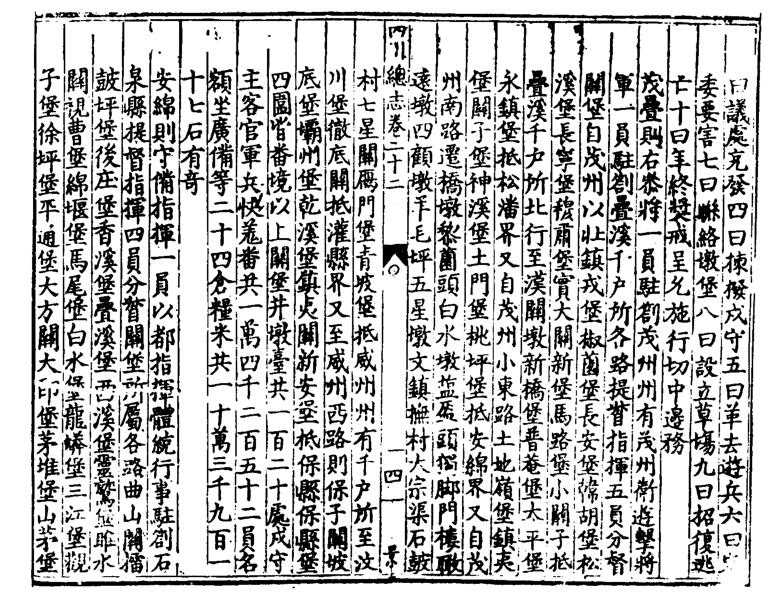 曰議處克發四曰揀撥戍守五曰革去遊兵六曰
委要害七曰聯絡墩堡八曰設立草塲九曰招復逃
亡十曰年終奬戒呈允施行切中邊務
茂疊則右叅將一員駐劄茂州州有茂州衛遊擊將
軍一員駐劄疊溪千户所各路提督指揮五員分督
關堡自茂州以北鎮戎堡椒園堡長安堡韓胡堡松
溪堡長寧堡穆肅堡實大關新堡馬路堡小關子抵
疊溪千户所北行至漢關墩新橋堡普菴堡太平堡
永鎮堡抵松潘界又自茂州小東路土地嶺堡鎮夷
堡關子堡神溪堡土門堡桃坪堡抵安綿界又自茂
州南路遷橋墩黎園頭白水墩盐 頭獨脚門樓墩
遠墩四顧墩羊毛坪五星墩文鎮撫村大宗渠石皷
四川總志卷二十二
十四
村七星關雁門堡青坡堡抵威州州有千户所至汶
川堡徹底關抵灌縣界又至威州西路則保子關坡
底堡壩州堡乾溪堡鎮夷關新安堡抵保縣保縣堡
四圍皆番境以上關堡并墩臺共一百二十處戍守
主客官軍兵快羌番共一萬四千二百五十二員名
額坐廣備等二十四倉糧米共一十萬三千九百一
十七石有奇
安綿則守備指揮一員以都指揮體統行事駐劄石
泉縣提督指揮四員分督關堡所屬各路曲山關擂
皷坪堡後庄堡香溪堡疊溪堡西溪堡靈鷲堡睢水
關視曹堡綿堰堡馬尾堡白水堡龍蟒堡三江堡觀
子堡徐坪堡平通堡大方關大印堡茅堆堡山茅堡